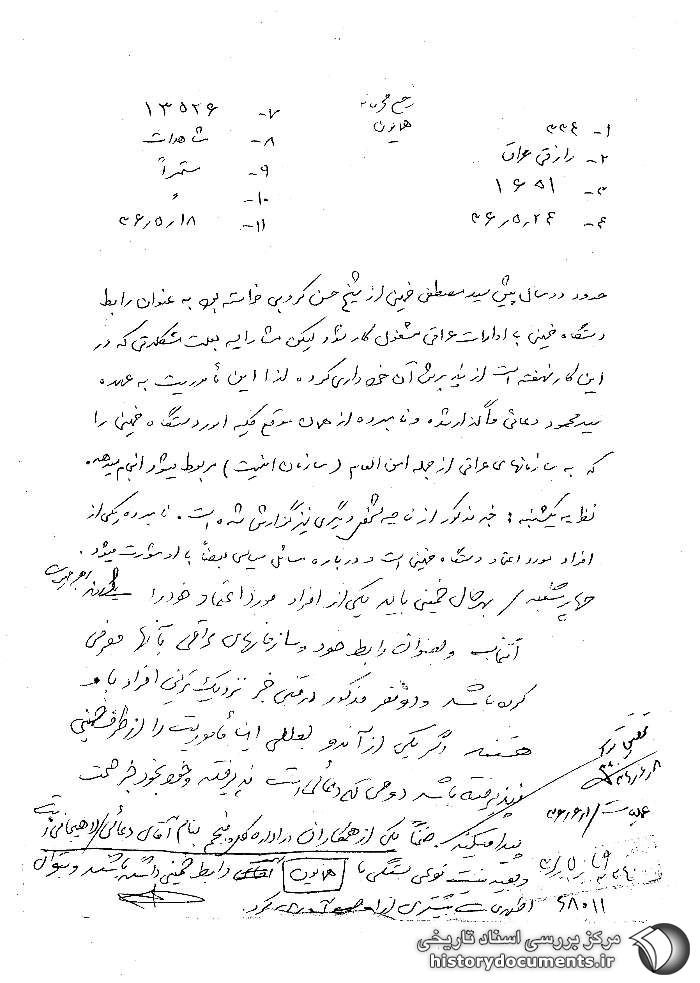 خیلی محرمانه
همایون
۱- ۳۳۴
۲- رازقی عراق
۳- ۱۶۵۱
۴- ۳۶/۵/۲۴
۷- ۱۳۵۲۶
۸- مشاهدات
۹- مستمراً
۱۰-
۱۱- ۳۶/۵/۱۸
حدود دو سال پیش سید مصطفی خمینی از شیخ حسن کروبی خواسته بود به عنوان رابط
دستگاه خمینی با ادارات عراقی مشغول کار شود لیکن مشارالیه بعلت مشکلاتی که در
این کار نهفته است از پذیرش آن خودداری کرده لذا این مأموریت به عهده
سید محمود دعائی واگذار شده و نامبرده از همان موقع کلیه امور دستگاه خمینی را
که به سازمانهای عراقی از جمله امن العام (سازمان امنیت) مربوط میشود انجام میدهد.
نظریه یکشنبه: خبر مذکور از ناحیه شخص دیگری نیز گزارش شده است. نامبرده یکی از
افراد مورد اعتماد دستگاه خمینی است و درباره مسائل سیاسی بعضاً با او مشورت میشود.
چهارشنبه / بهرحال خمینی باید یکی از افراد مورد اعتماد خود را
انتخاب و بعنوان رابط خود و سازمانهای عراقی بآنها معرفی
کرده باشد و دو نفر مذکور در متن خبر نزدیک ترین افراد باو
هستند اگر یکی از آندو بعللی این مأموریت را از طرف خمینی
نپذیرفته باشد دومی که دعائی است پذیرفته و خبر بخودی خود صحت
پیدا میکند. ضمناً یکی از همکاران در اداره کل پنجم بنام آقای دعائی/لاهیجانی است
و بعید نیست نوعی بستگی با همایون رابط خمینی داشته باشد و بتوان
اطلاعات بیشتری از او کرد.
۶۸۰۱۱
مرکز بررسی اسناد تاریخی
historydocuments.ir